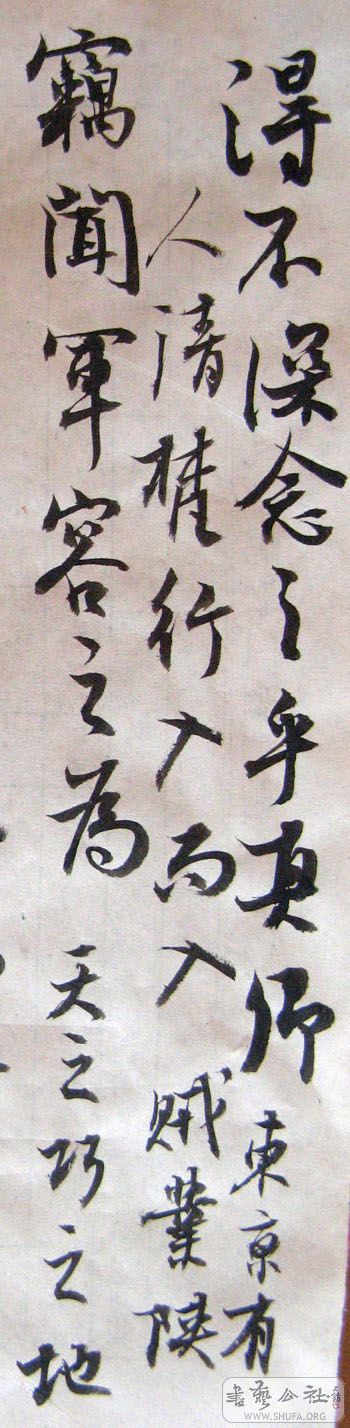 得不深念之乎真卿 東京有
人清權行入而入 賊業陝
竊聞軍容之為 天之巧之地
書藝公社
WWW.SHUFA.ORG